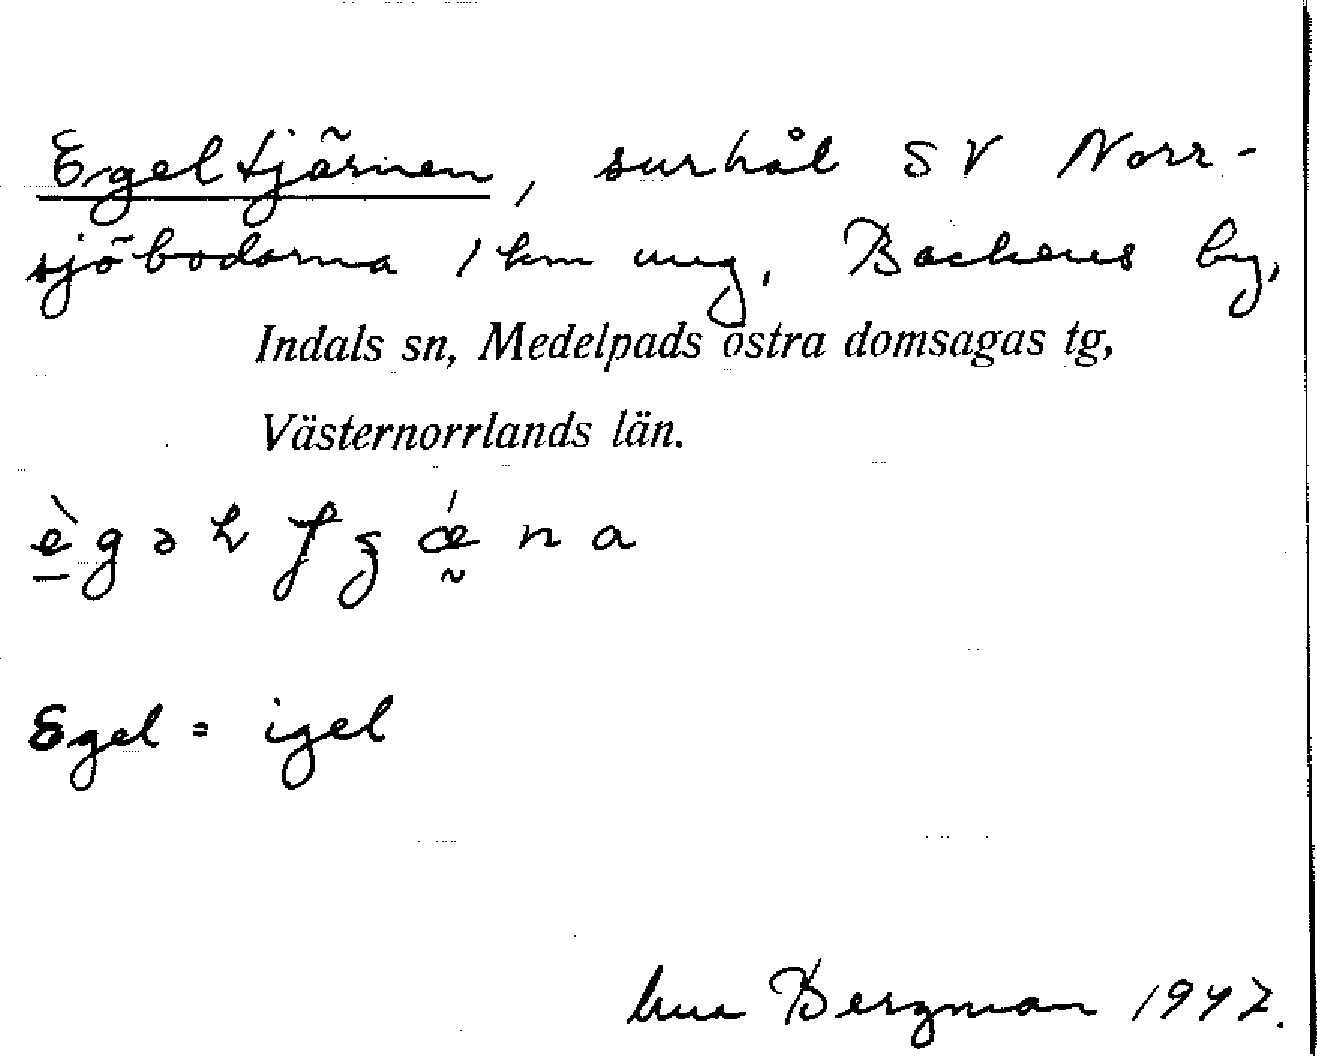 Egeltjärnen, surhål SV Norr-
sjöbodarna 1 km ung, Backens by,
Indals sn, Medelpads östra domsagas tg,
Västernorrlands län.
Egel = igel
Bergman 1947.